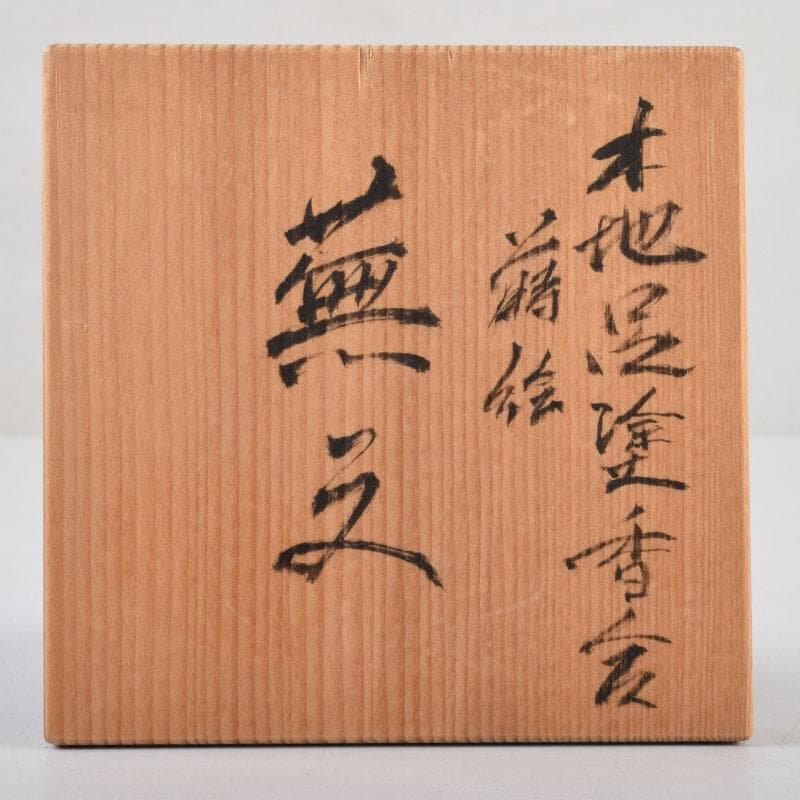 木地呂塗香合
蒔絵
蕪文